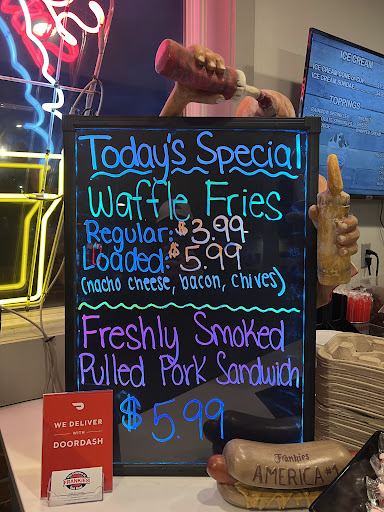 ICE CREAM
TOPPINGS
Today's Special
Waffle Fries
Regular: $3.99
Loaded: $5.99
(nacho cheese, bacon, chives)
Freshly Smoked
Pulled Pork Sandwich
$5.99
WE DELIVER
WITH
DOORDASH
FRANKIES
Frankies
AMERICA #1